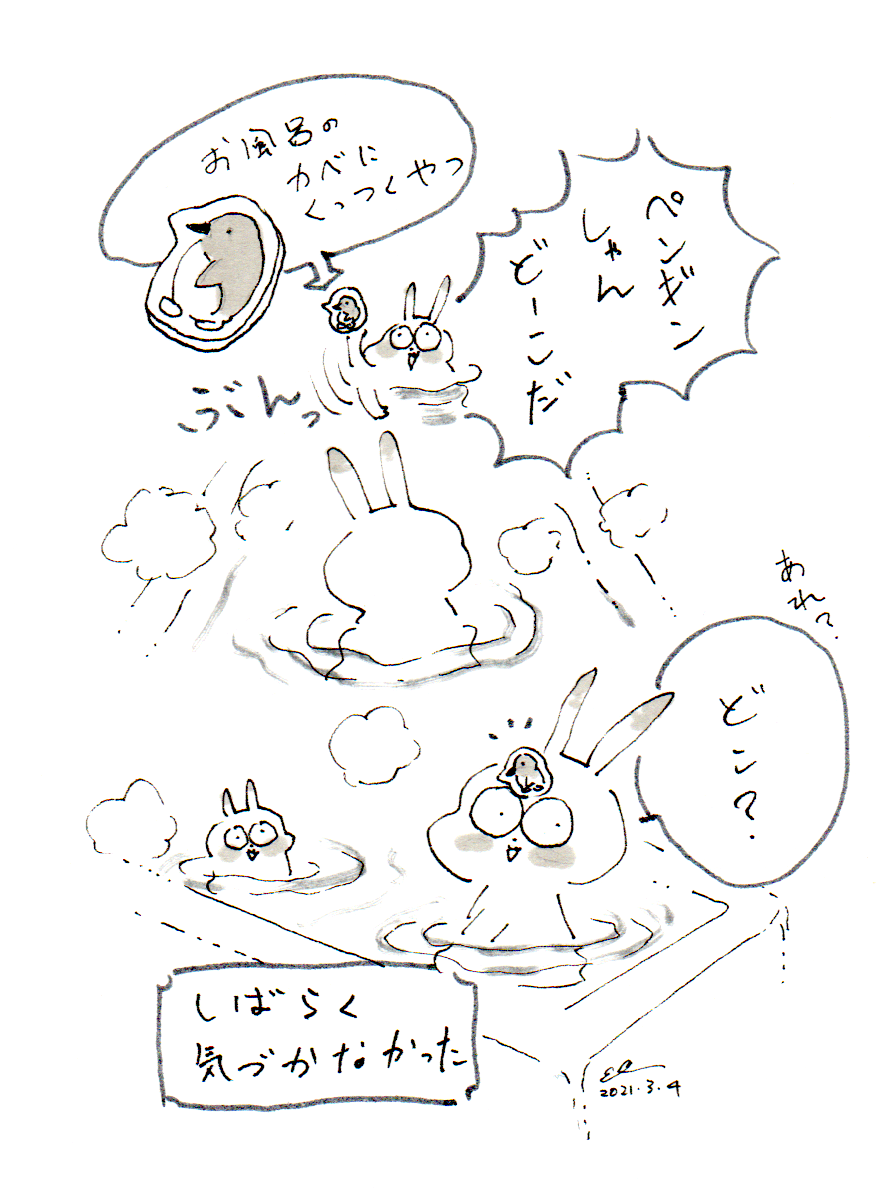 お風呂の
カベに
くっつくやつ
ペンギン
しゃん
どーこだ
ぶんっ
あれ?
どこ?
しばらく
気づかなかった
2021.3.4